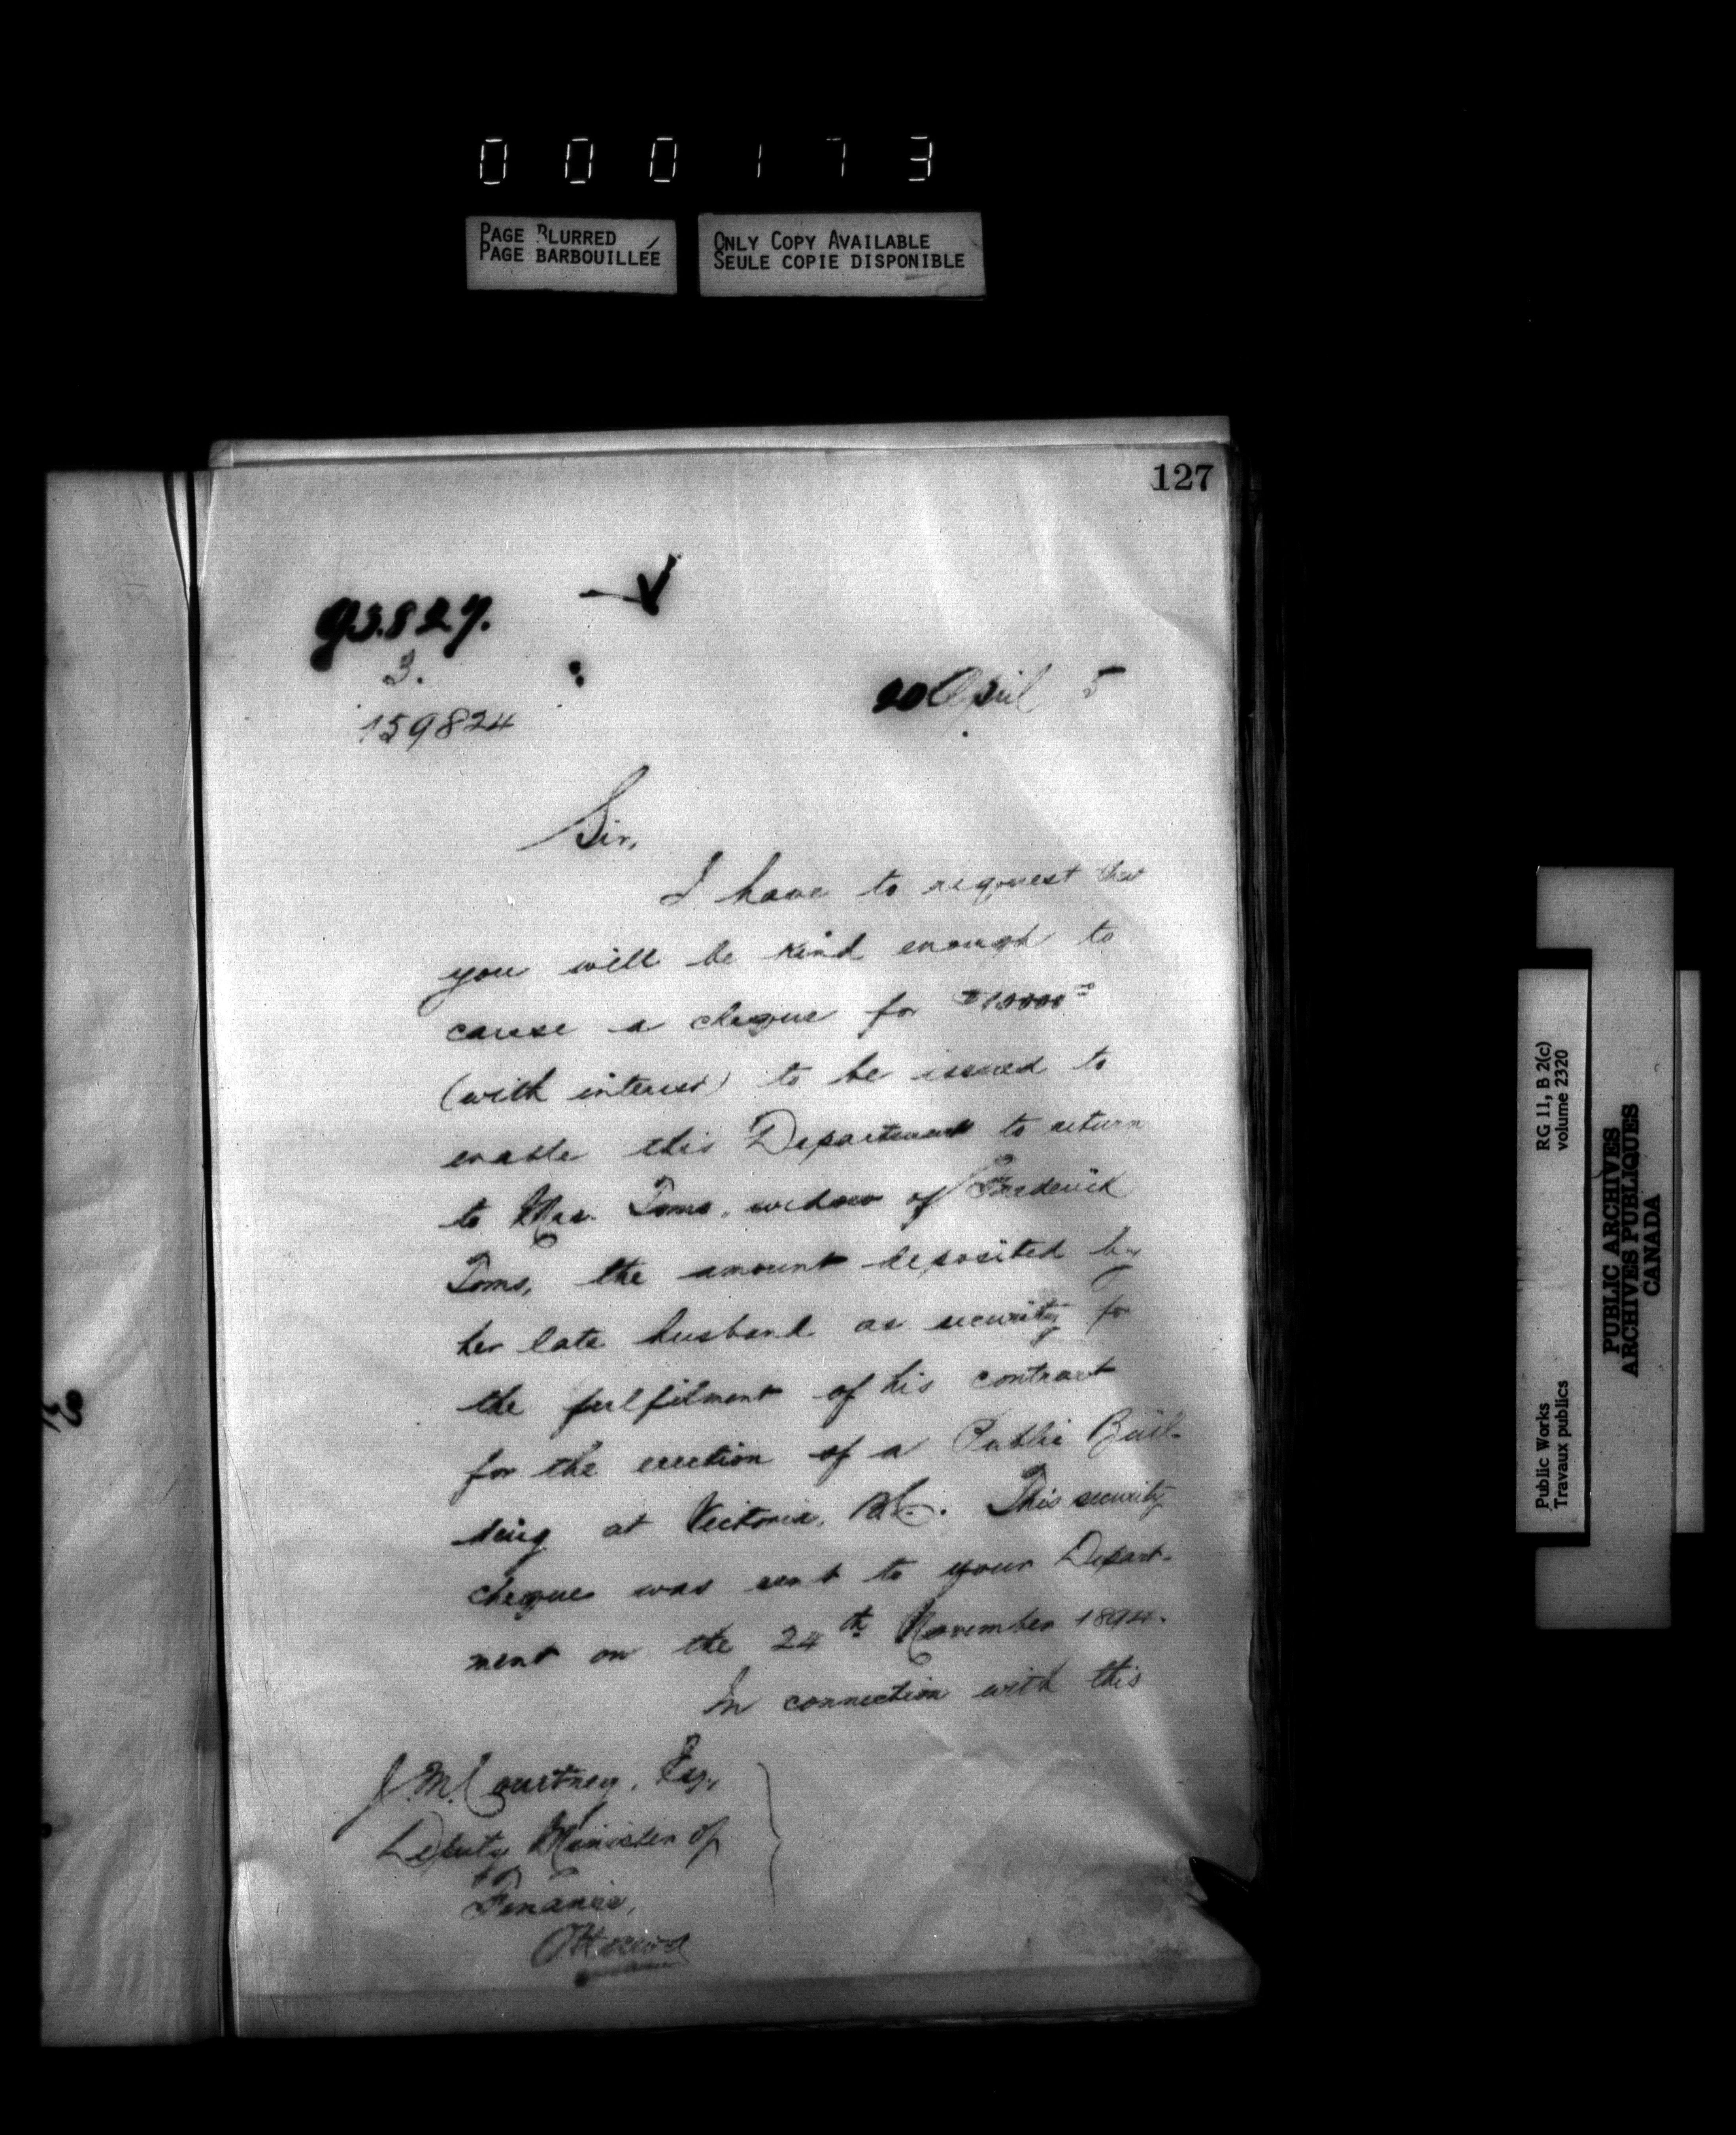 000173
PAGE BLURRED
PAGE BARBOUILLÉE
ONLY COPY AVAILABLE
SEULE COPIE DISPONIBLE
127
3.
159824
20 April 5
Sir,
I have to request that
you will be kind enough to
cause a cheque for
(with interest) to be issued to
enable this Department to return
to Mrs. Toms, widow of Frederick
Toms, the amount deposited by
her late husband as security for
the fulfilment of his contract
for the erection of a Public Buil-
ding at Victoria, B.C. This security
cheque was sent to your Depart-
ment on the 24th November 1894.
In connection with this
J. M. Courtney, Esq.,
Deputy Minister of
Finance,
Ottawa
Public Works
Travaux publics
RG 11, B 2(c)
volume 2320
PUBLIC ARCHIVES
ARCHIVES PUBLIQUES
CANADA